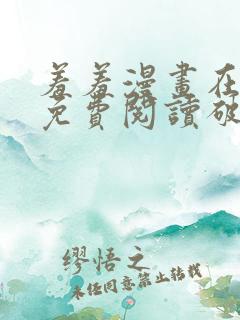 羞羞漫畫在
免費閱讀破
繆悟之
未经同意禁止转载